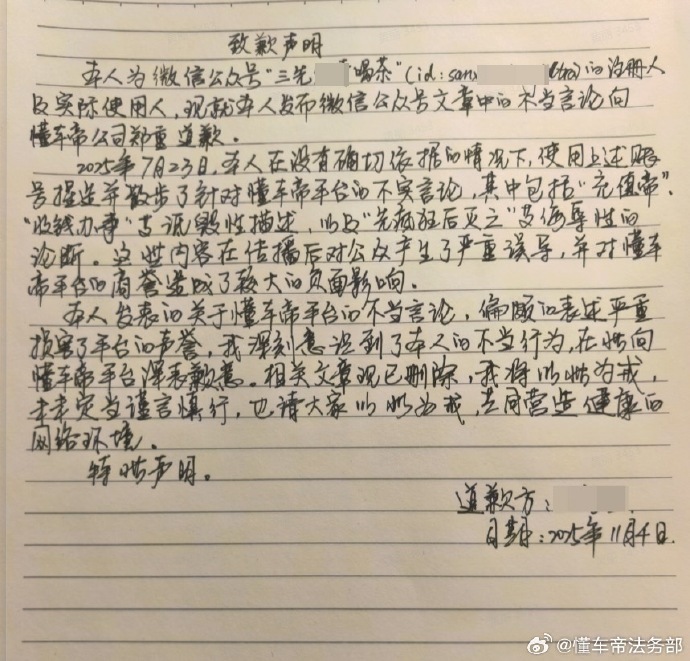 致歉声明
本人为微信公众号“三先 喝茶”(id:san ltea)的注册人
及实际使用人,现就本人发布微信公众号文章中的不当言论向
懂车帝公司郑重道歉。
2025年7月23日,本人在没有确切依据的情况下,使用上述账
号捏造并散步了针对懂车帝平台的不实言论,其中包括“充值帝”、
“收钱办事”等诋毁性描述,以及“先疯狂后灭之”等侮辱性的
论断。这些内容在传播后对公众产生了严重误导,并对懂车
帝平台的商誉造成了较大的负面影响。
本人发表的关于懂车帝平台的不当言论,偏颇的表述严重
损害了平台的声誉,我深刻意识到了本人的不当行为,在此向
懂车帝平台深表歉意。相关文章现已删除,我将以此为戒,
未来定当谨言慎行,也请大家以此为戒,共同营造健康的
网络环境。
特此声明。
道歉方:
日期:2025年11月4日.
@懂车帝法务部